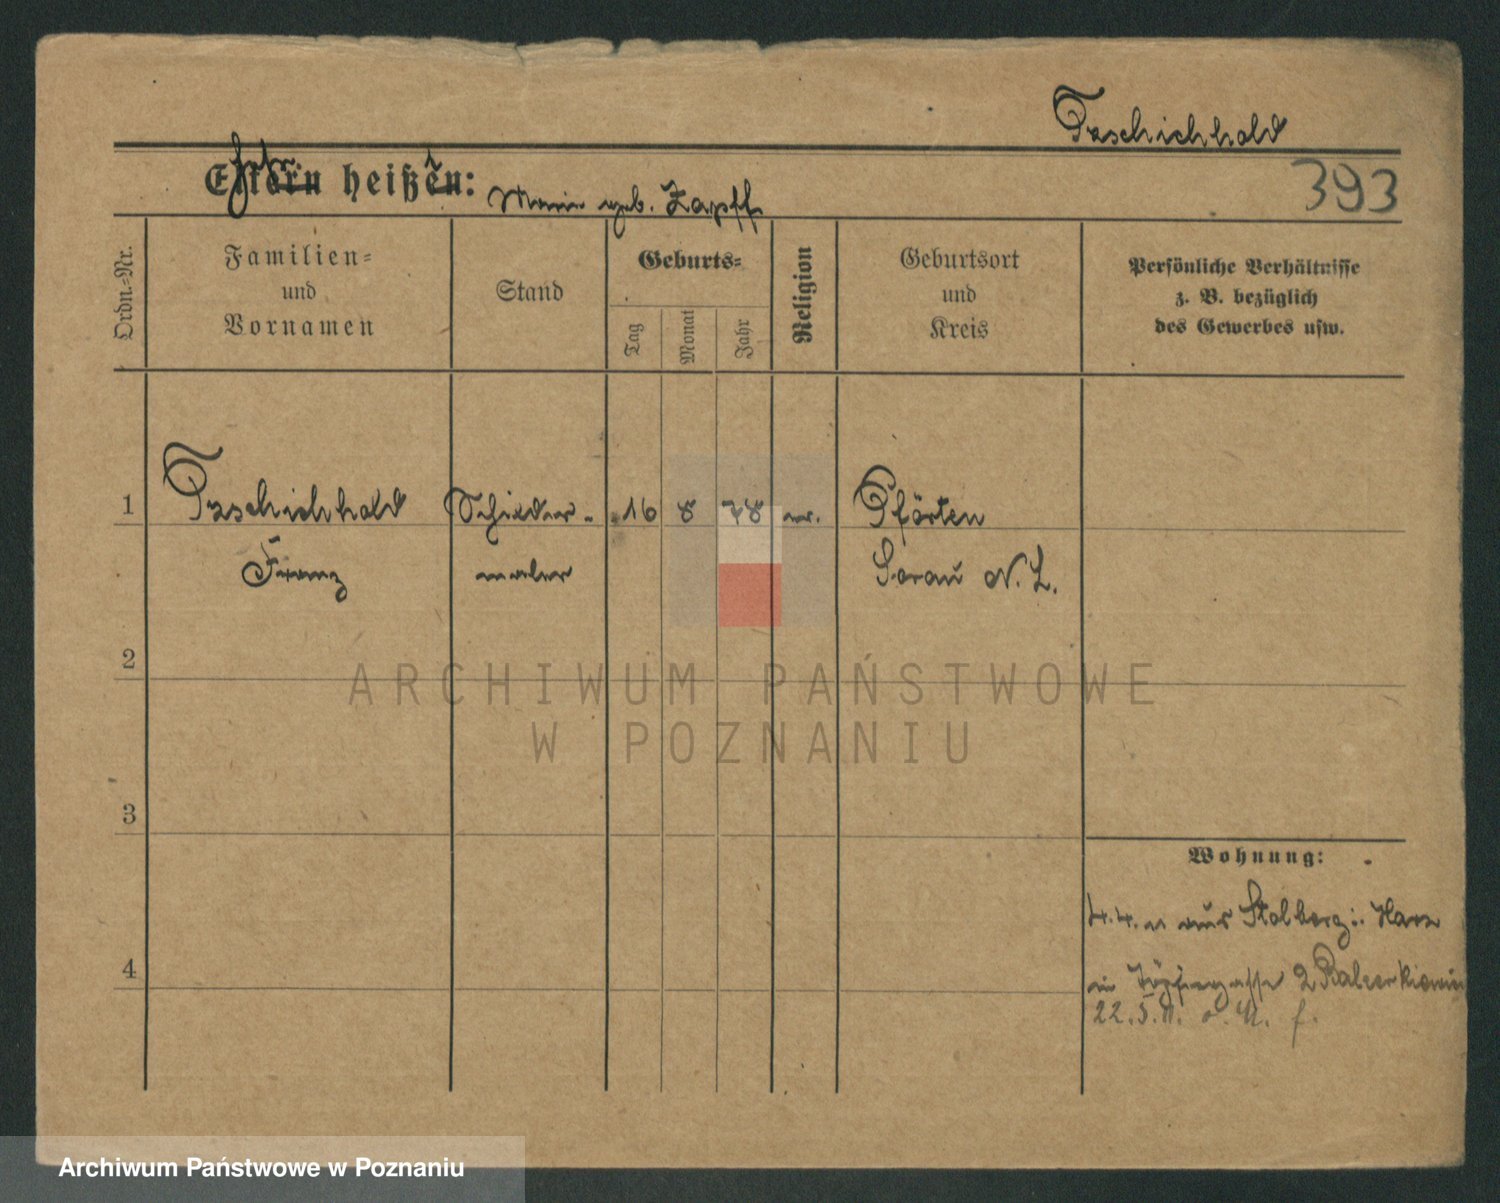 Tzschichhold
Eltern heißen:
Marie geb. Zapff
393
Ordn.-Nr.
Familien-
und
Vornamen
Stand
Geburts-
Tag
Monat
Jahr
Religion
Geburtsort
und
Kreis
Persönliche Verhältnisse
z. B. bezüglich
des Gewerbes usw.
1
Tzschichhold
Schilder-
16
8
78
ev.
Pförten
Franz
maler
Sorau N. L.
2
ARCHIWUM PAŃSTWOWE
W POZNANIU
3
Wohnung:
4.4. aus Stolberg i. Harz
4
in Töpfergasse 2
22.5.11.
Archiwum Państwowe w Poznaniu